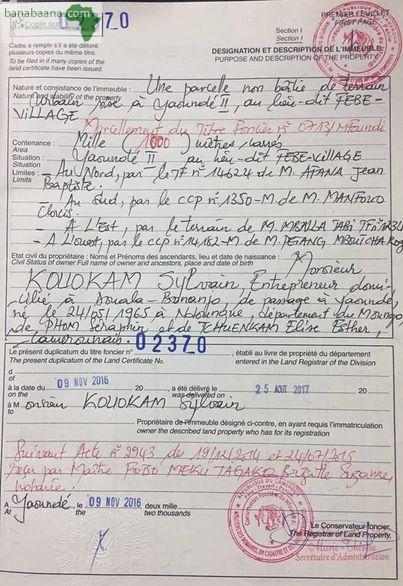 banabaana.com
Copie Sur 02370
PREMIER FEUILLET
FIRST PAGE
Section I
Section I
Cadre à remplir s'il a été délivré
plusieurs copies du même titre.
To be filed in if many copies of the
land certificate have been issued.
DESIGNATION ET DESCRIPTION DE L'IMMEUBLE
PURPOSE AND DESCRIPTION OF THE PROPERTY
Nature et consistance de l'immeuble : Une parcelle non bâtie de terrain
Nature and stability of the property
Urbain sise à Yaoundé II, au lieu-dit FEBE-
VILLAGE
Morcellement du Titre Foncier n° 0713/Mfoundi
Contenance : Mille (1000) mètres carrés
Area
Situation : Yaoundé II au lieu-dit FEBE-VILLAGE
Situation
Limites : - Au Nord, par le TF n° 14624 de M. ATANA Jean
Limits
Baptiste.
- Au Sud, par le CCP n° 1350-M de M. MANFOUO
Clovis.
- A L'Est, par le terrain de M. MBALLA TABI TF n°
- A L'ouest, par le CCP n° de M.
Etat civil du propriétaire : Noms et Prénoms des ascendants, lieu et date de naissance : Monsieur
Civil Status of owner Full name of owner and ancestors, place and date of birth
KOUOKAM Sylvain, Entrepreneur domi-
cilié à Douala-Bonanjo, de passage à Yaoundé,
né le 24/05/1965 à département du Moungo,
de Séraphin et de TCHUENKAM Elise Esther,
Camerounais.
Le présent duplicatum du titre foncier n° 02370, établi au livre de propriété du département
The present duplicatum of the Land Certificate No. entered in the Land Registrar of the Division
d
of
à la date du 09 NOV 2016 20 a été délivré le 25 AOUT 2017 20
on the was delivered on
à Monsieur KOUOKAM Sylvain
to M
Propriétaire de l'immeuble désigné ci-contre, en ayant requis l'immatriculation
owner the described land property who has for its registration
Suivant Acte n° 2943 de 19/12/2014 et 24/07/2015
reçu par Maître Brigitte Suzanne,
notaire.
A Yaoundé, le 09 NOV 2016 deux mille
At two thousands
Le Conservateur foncier,
The Registrar of Land Property,
Secrétaire d'Administration